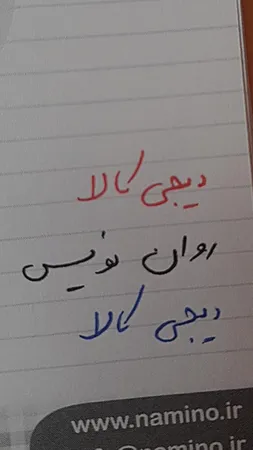 دیجی کالا
روان نویس
دیجی کالا
www.namino.ir
@namino.ir